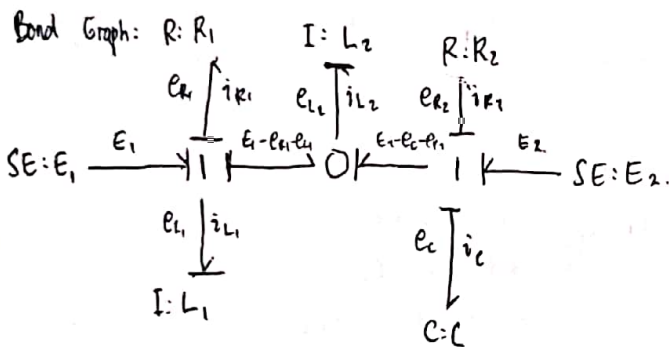 Bond Graph: R: R₁ I: L₂ R: R₂
e_R₁ i_R₁ e_L₂ i_L₂ e_R₂ i_R₂
SE: E₁ E₁ 1 E₁-e_R₁-e_L₁ 0 1 E₂ SE: E₂.
e_L₁ i_L₁ e_C i_C
I: L₁ C: C